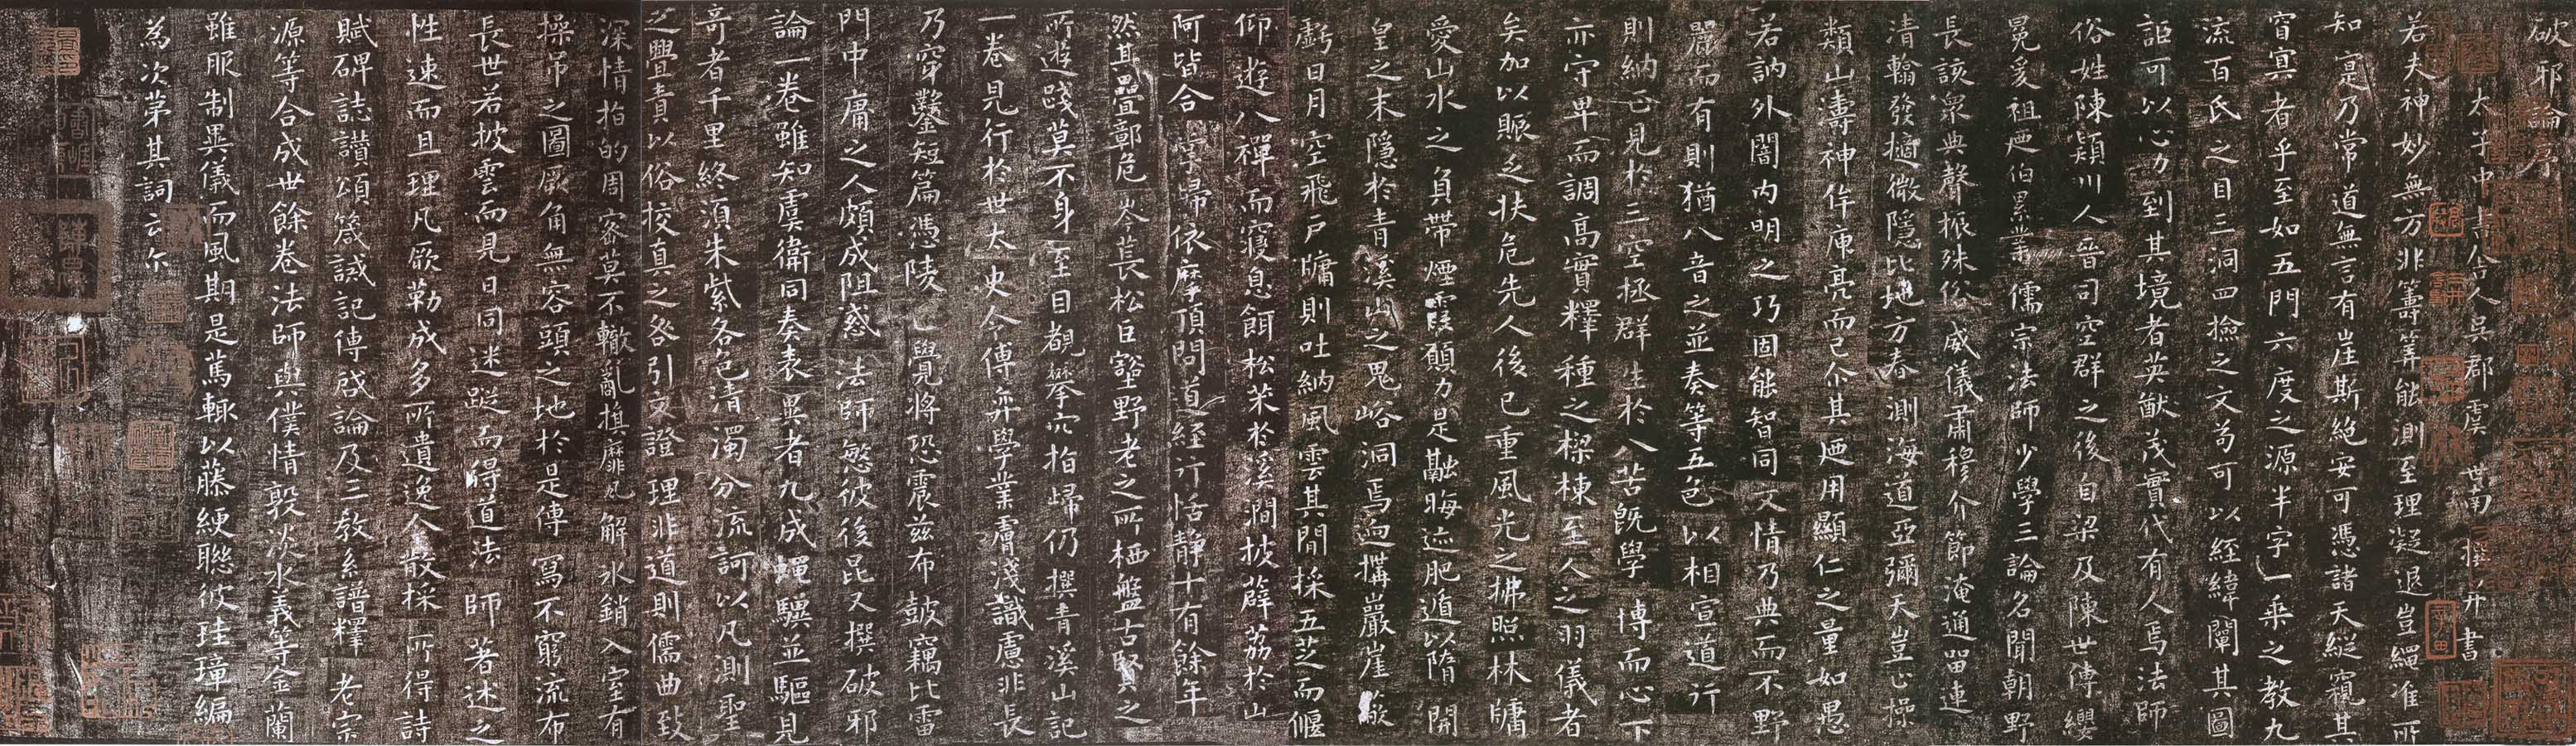 破邪論序
太子中書舍人吳郡虞世南撰并書
若夫神妙無方非籌筭能測至理凝退豈繩准所
知寔乃常道無言有崖斯絕安可憑諸天縱窺其
窅寘者乎至如五門六度之源半字一乘之教九
流百氏之目三洞四撿之文苟可以經緯闡其圖
詎可以心力到其境者英猷茂實代有人焉法師
俗姓陳潁川人晉司空群之後自梁及陳世傳纓
冕爰祖迺伯累業儒宗法師少學三論名聞朝野
長該眾典聲振殊俗威儀肅穆介節淹通留連
清翰發擿微隱比地方春測海道亞彌天豈止操
類山濤神侔庾亮而已尒其迺用顯仁之量如愚
若訥外闇內明之巧固能智同文情乃典而不野
麗而有則猶八音之並奏等五色以相宣道行
則納正見於三空拯群生於八苦既學博而心下
亦守卑而調高實釋種之樑棟至人之羽儀者
矣加以賑乏扶危先人後已重風光之拂照林牗
愛山水之負帶煙霞願力是融晦迹肥遁以隋開
皇之末隱於青溪山之鬼峪洞焉迺搆巖崖敞
虧日月空飛戶牗則吐納風雲其間採五芝而偃
仰遊八禪而寢息餌松茱於溪澗披薜荔於山
阿皆合掌歸依摩頂問道經行恬靜十有餘年
然其疊嶂危岑萇松巨壑野老之所栖盤古賢之
所遊踐莫不身至目覩攀穴指歸仍撰青溪山記
一卷見行於世太史令傅弈學業膚淺識慮非長
乃穿鑿短篇憑陵正覺將恐震茲布鼓竊比雷
門中庸之人頗成阻惑法師愍彼後昆又撰破邪
論一卷雖知虞衛同奏表異者九成蠅驥並驅見
奇者千里終須朱紫各色清濁分流訶以凡測聖
之舋責以俗挍真之咎引文證理非道則儒曲致
深情指的周密莫不轍亂旗靡凡解水銷入室有
操吊之圖厥角無容頭之地於是傳寫不窮流布
長世若披雲而見日同迷蹤而得道法師著述之
性速而且理凡厥勒成多所遺逸今散採所得詩
賦碑誌讚頌箴誡記傳啓論及三教系譜釋老宗
源等合成世餘卷法師與僕情敦淡水義等金蘭
雖服制異儀而風期是篤輒以藤綆聯彼珪璋編
為次苐其詞云尒